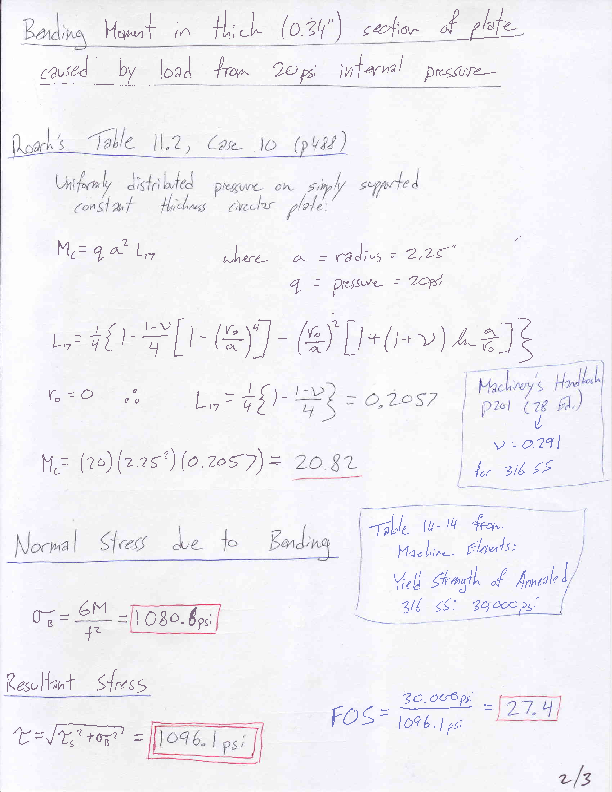 Bending Moment in thick (0.34") section of plate
caused by load from 20psi internal pressure
Roark's Table 11.2, Case 10 (p488)
Uniformly distributed pressure on simply supported
constant thickness circular plate:
M_c = q a² L₁₇ where a = radius = 2.25"
q = pressure = 20psi
L₁₇ = 1/4 { 1 - (1-ν)/4 [ 1 - (r₀/a)⁴ ] - (r₀/a)² [ 1 + (1+ν) ln a/r₀ ] }
r₀ = 0 ∴ L₁₇ = 1/4 { 1 - (1-ν)/4 } = 0.2057
Machinery's Handbook
p201 (28 Ed.)
↓
ν = 0.291
for 316 SS
M_c = (20)(2.25²)(0.2057) = 20.82
Normal Stress due to Bending
Table 14-14 from
Machine Elements:
Yield Strength of Annealed
316 SS: 30,000psi
σ_B = 6M/t² = 1080.6 psi
Resultant Stress
τ = √(τ_s² + σ_B²) = 1096.1 psi
FOS = 30,000psi / 1096.1psi = 27.4
2/3